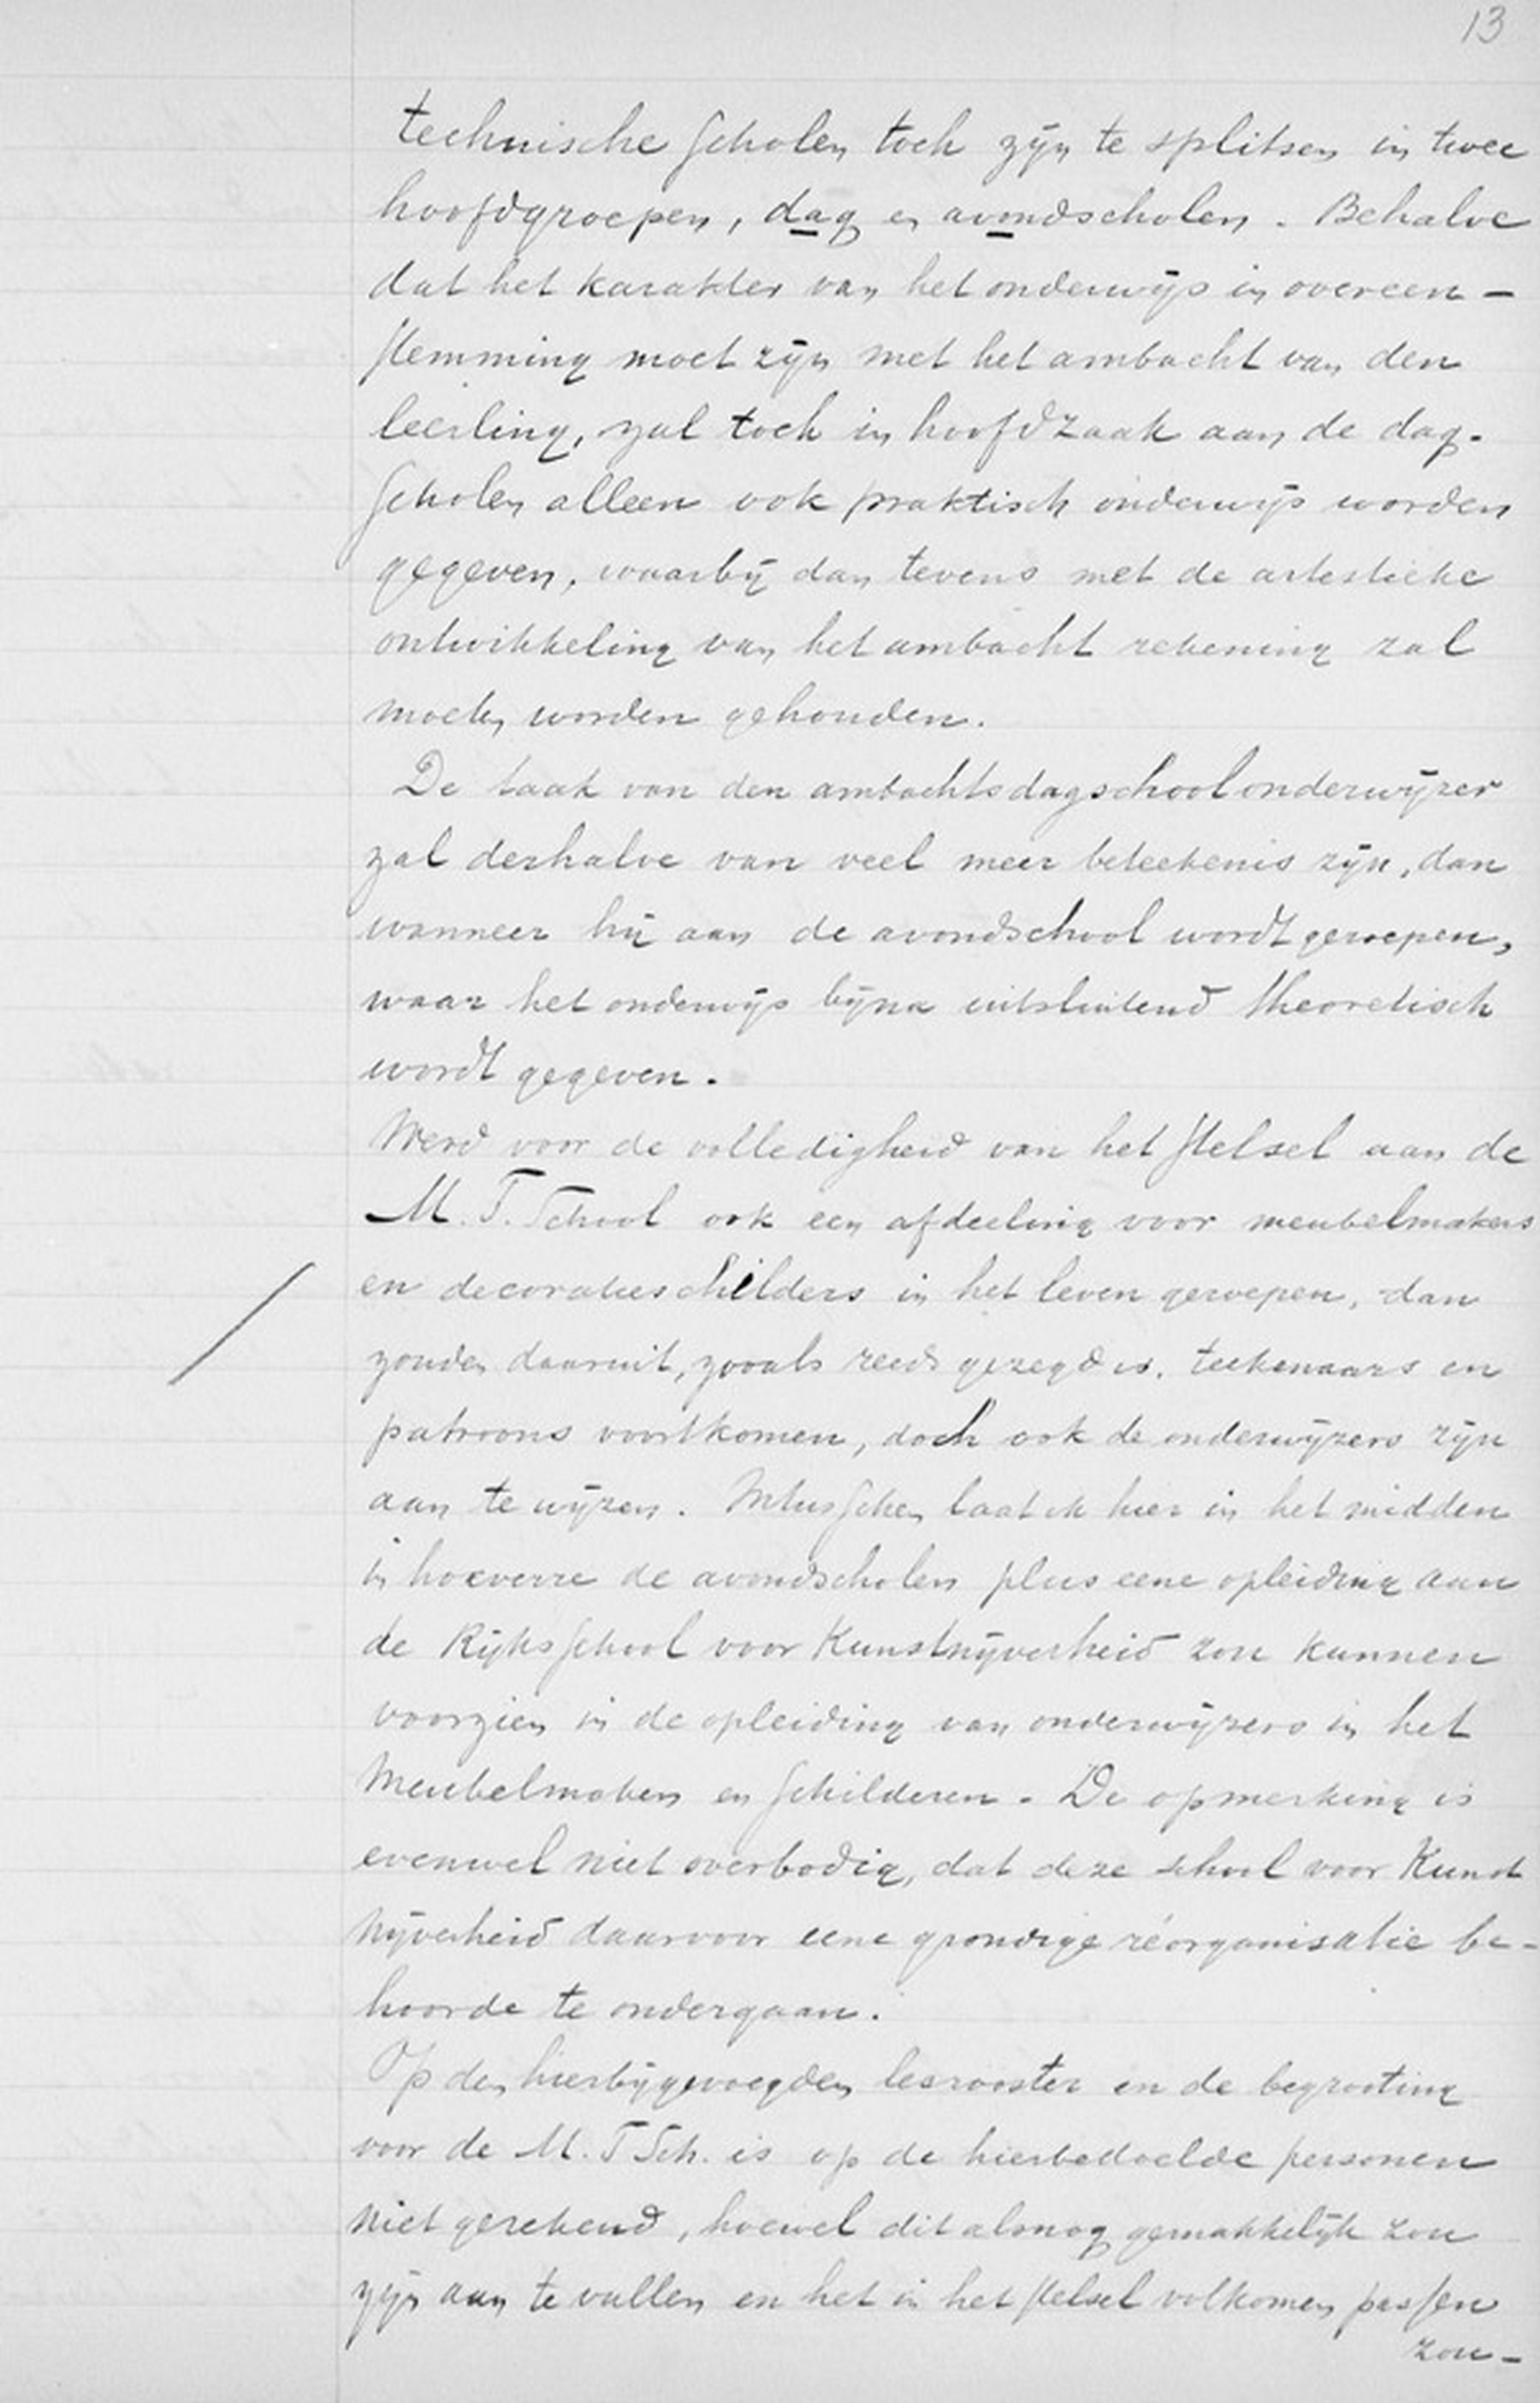 13
technische scholen toch zijn te splitsen in twee
hoofdgroepen, dag en avondscholen. Behalve
dat het karakter van het onderwijs in overeen-
stemming moet zijn met het ambacht van den
leerling, zal toch in hoofdzaak aan de dag-
scholen alleen ook praktisch onderwijs worden
gegeven, waarbij dan tevens met de artestieke
ontwikkeling van het ambacht rekening zal
moeten worden gehouden.
De taak van den ambachtsdagschoolonderwijzer
zal derhalve van veel meer beteekenis zijn, dan
wanneer hij aan de avondschool wordt geroepen,
waar het onderwijs bijna uitsluitend theoretisch
wordt gegeven.
Werd voor de volledigheid van het stelsel aan de
M. T. School ook een afdeeling voor meubelmakers
en decoratieschilders in het leven geroepen, dan
zouden daaruit, zooals reeds gezegd is, teekenaars en
patroons voortkomen, doch ook de onderwijzers zijn
aan te wijzen. Intusschen laat ik hier in het midden
in hoeverre de avondscholen plus eene opleiding aan
de Rijksschool voor Kunstnijverheid zou kunnen
voorzien in de opleiding van onderwijzers in het
Meubelmaken en schilderen. De opmerking is
evenwel niet overbodig, dat deze school voor Kunst
nijverheid daarvoor eene grondige réorganisatie be-
hoorde te ondergaan.
Op den hierbijgevoegden lesrooster en de begrooting
voor de M. T Sch. is op de hierbedoelde personen
niet gerekend, hoewel dit alsnog gemakkelijk zou
zijn aan te vullen en het in het stelsel volkomen passen
zou-